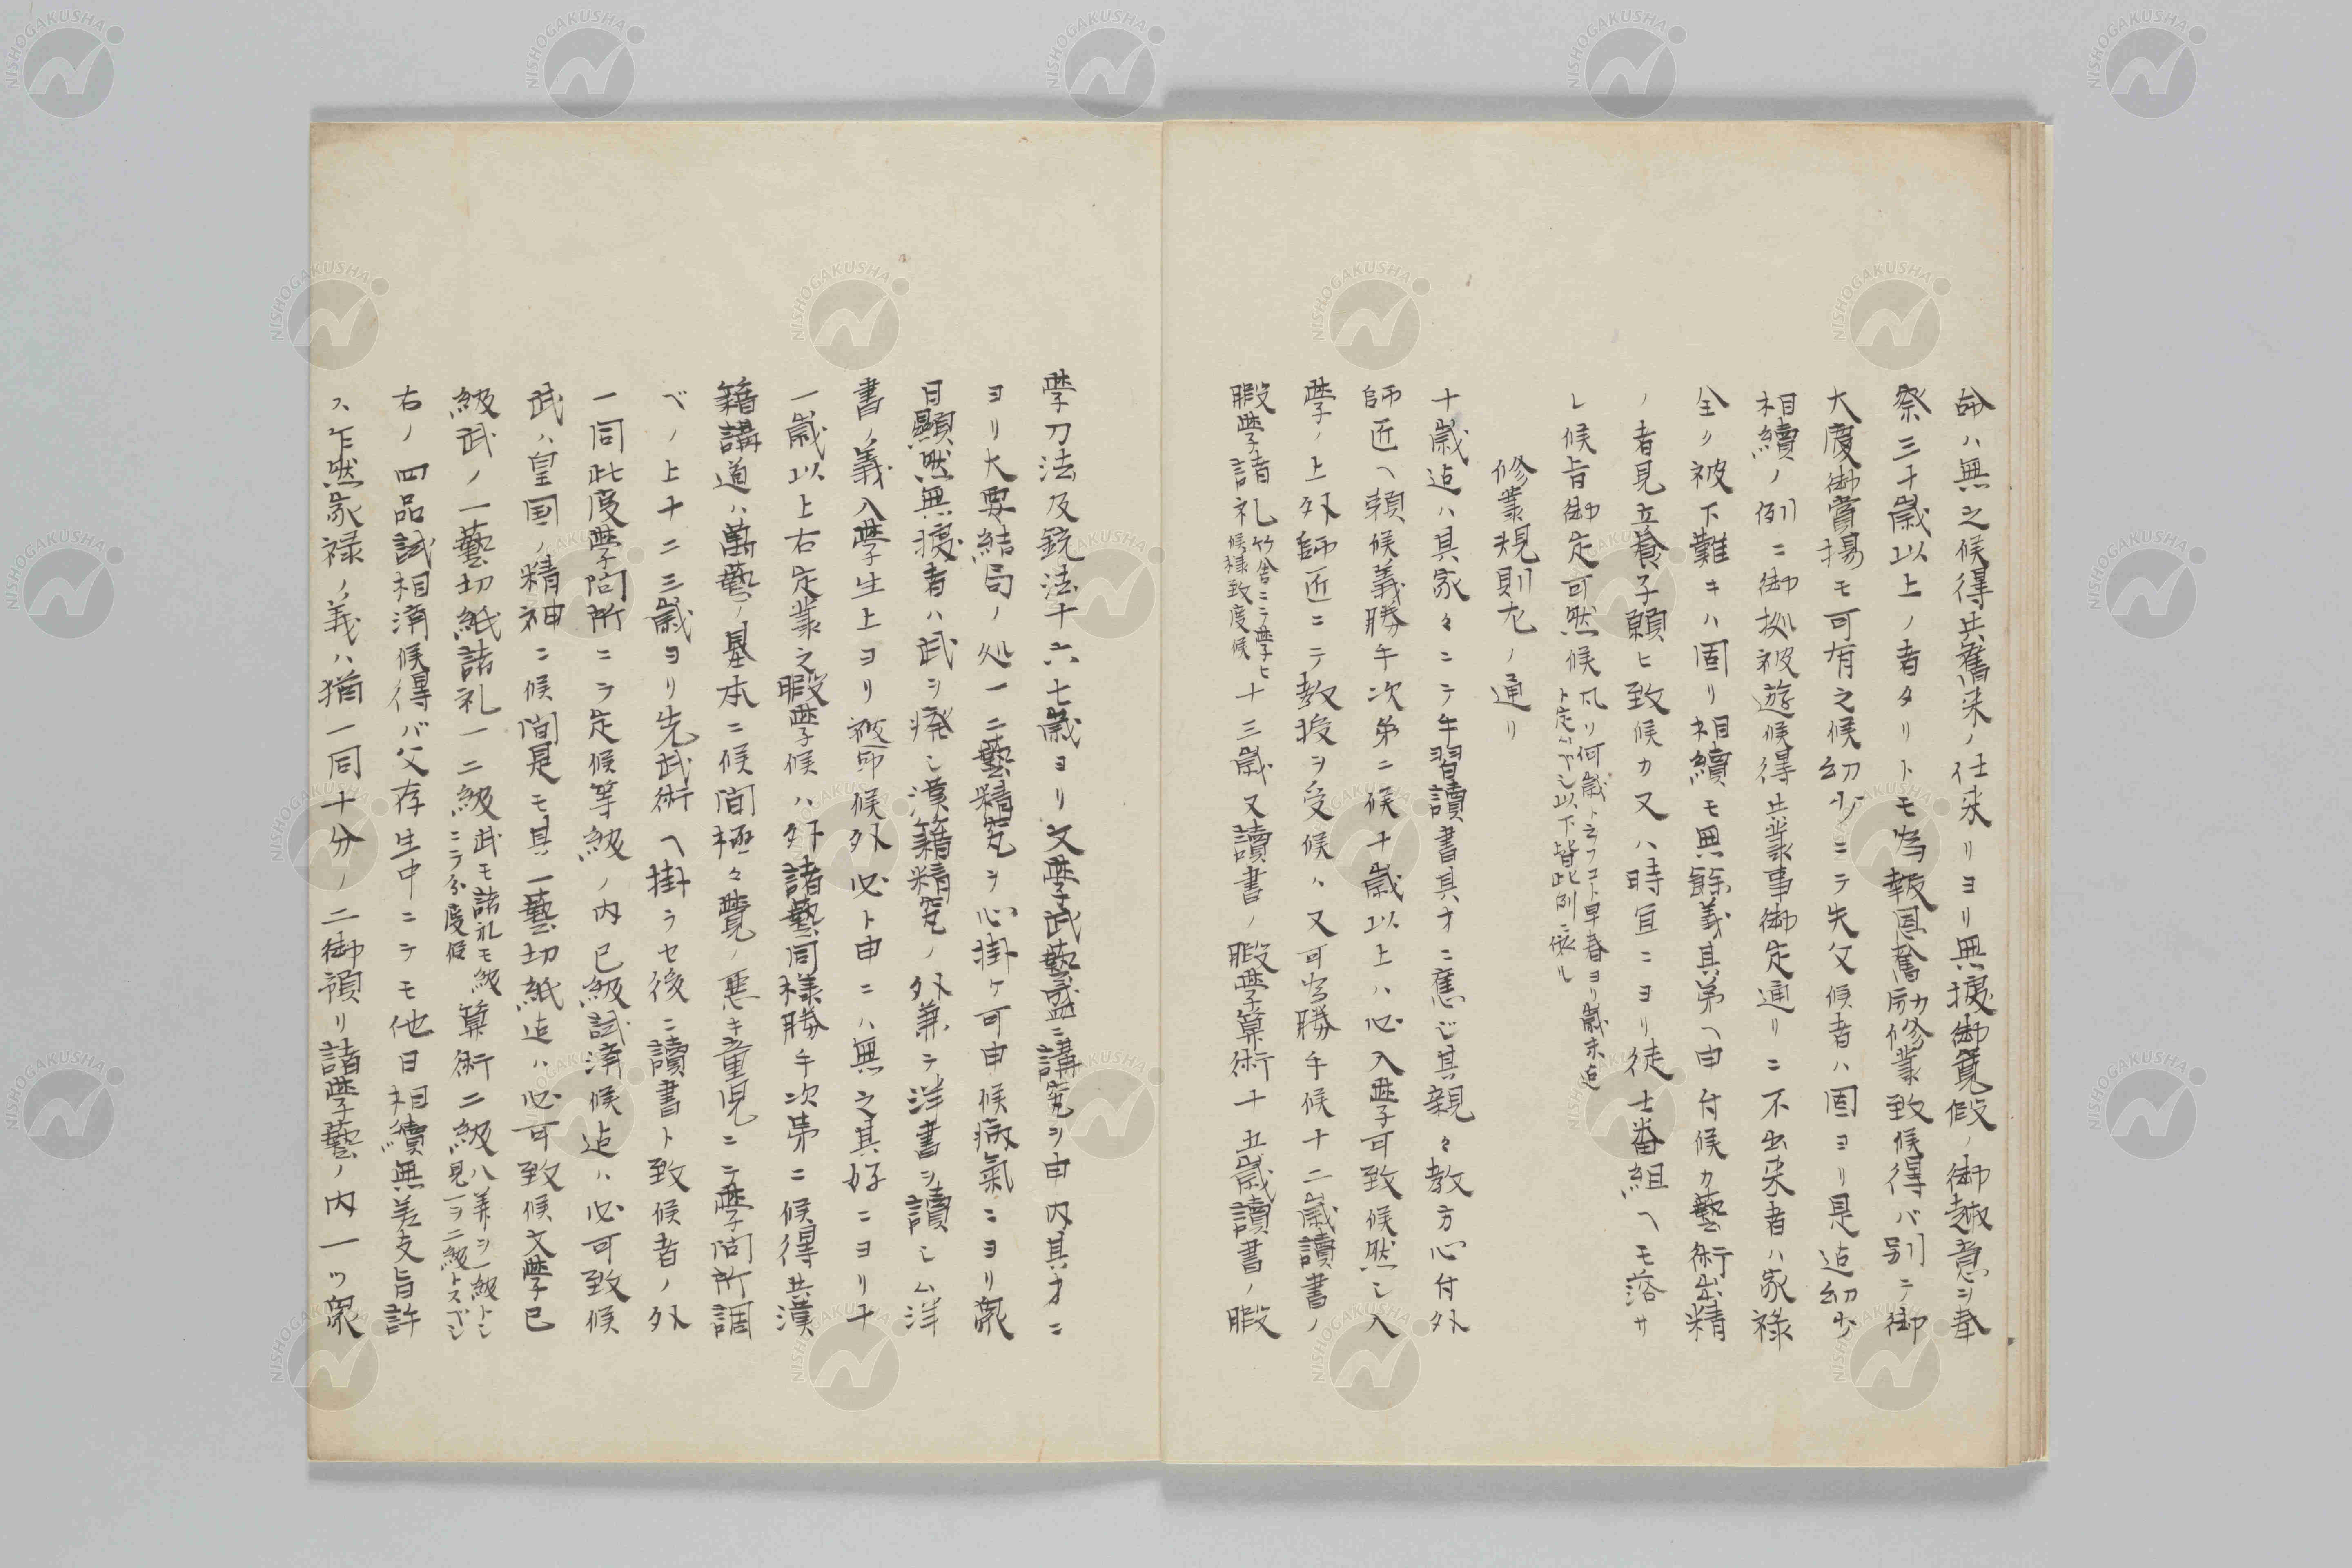 命ハ無之候得共舊来ノ仕来リヨリ無據御寛假ノ御趣意ヲ奉
祭三十歳以上ノ者タリトモ為報恩奮励修業致候得バ別テ御
大慶御賞揚モ可有之候幼少ニテ失父候者ハ固ヨリ是迠幼少
相續ノ例ニ御拠被遊候得共業事御定通リニ不出来者ハ家禄
全ク被下難キハ固リ相續モ無餘義其第ヘ申付候カ藝術出精
ノ者見立養子願ヒ致候カ又ハ時宜ニヨリ徒士番組ヘモ落サ
レ候旨御定可然候凡ソ何歳ト云フコト早春ヨリ歳末迠
ト定ムベシ以下皆此例ニ依ル
修業規則尤ノ通リ
十歳迠ハ其家々ニテ手習讀書其才ニ應ジ其親々教方心付外
師匠ヘ頼候義勝手次第ニ候十歳以上ハ必入學可致候然シ入
學ノ上外師匠ニテ教授ヲ受候ハ又可為勝手候十二歳讀書ノ
暇學諸礼竹舎ニテ學ヒ
候様致度候十三歳又讀書ノ暇學算術十五歳讀書ノ暇
學刀法及銃法十六七歳ヨリ文學武藝盛ニ講究ヲ申内其才ニ
ヨリ大要結局ノ処一二藝精究ヲ心掛ケ可申候病氣ニヨリ衆
目顯然無據者ハ武ヲ癈シ漢籍精究ノ外兼テ洋書ヲ讀シム洋
書ノ義入學生上ヨリ被命候外必ト申ニハ無之其好ニヨリ十
一歳以上右定業之暇學候ハ外諸藝同様勝手次第ニ候得共漢
籍講道ハ萬藝ノ基本ニ候間極々覺ノ悪キ童児ニテ學問所調
ベノ上十二三歳ヨリ先武術ヘ掛ラセ後ニ讀書ト致候者ノ外
一同此度學問所ニテ定候等級ノ内已級試済候迠ハ必可致候
武ハ皇国ノ精神ニ候間是モ其一藝切紙迠ハ必可致候文學已
級武ノ一藝切紙諸礼一二級武モ諸礼モ級
ニテ分度候算術二級八美ヲ一級トシ
見一ヲ二級トスベシ
右ノ四品試相済候得バ父存生中ニテモ他日相續無差支旨許
ス乍然家禄ノ義ハ猶一同十分ノ二御預リ諸學藝ノ内一ツ衆